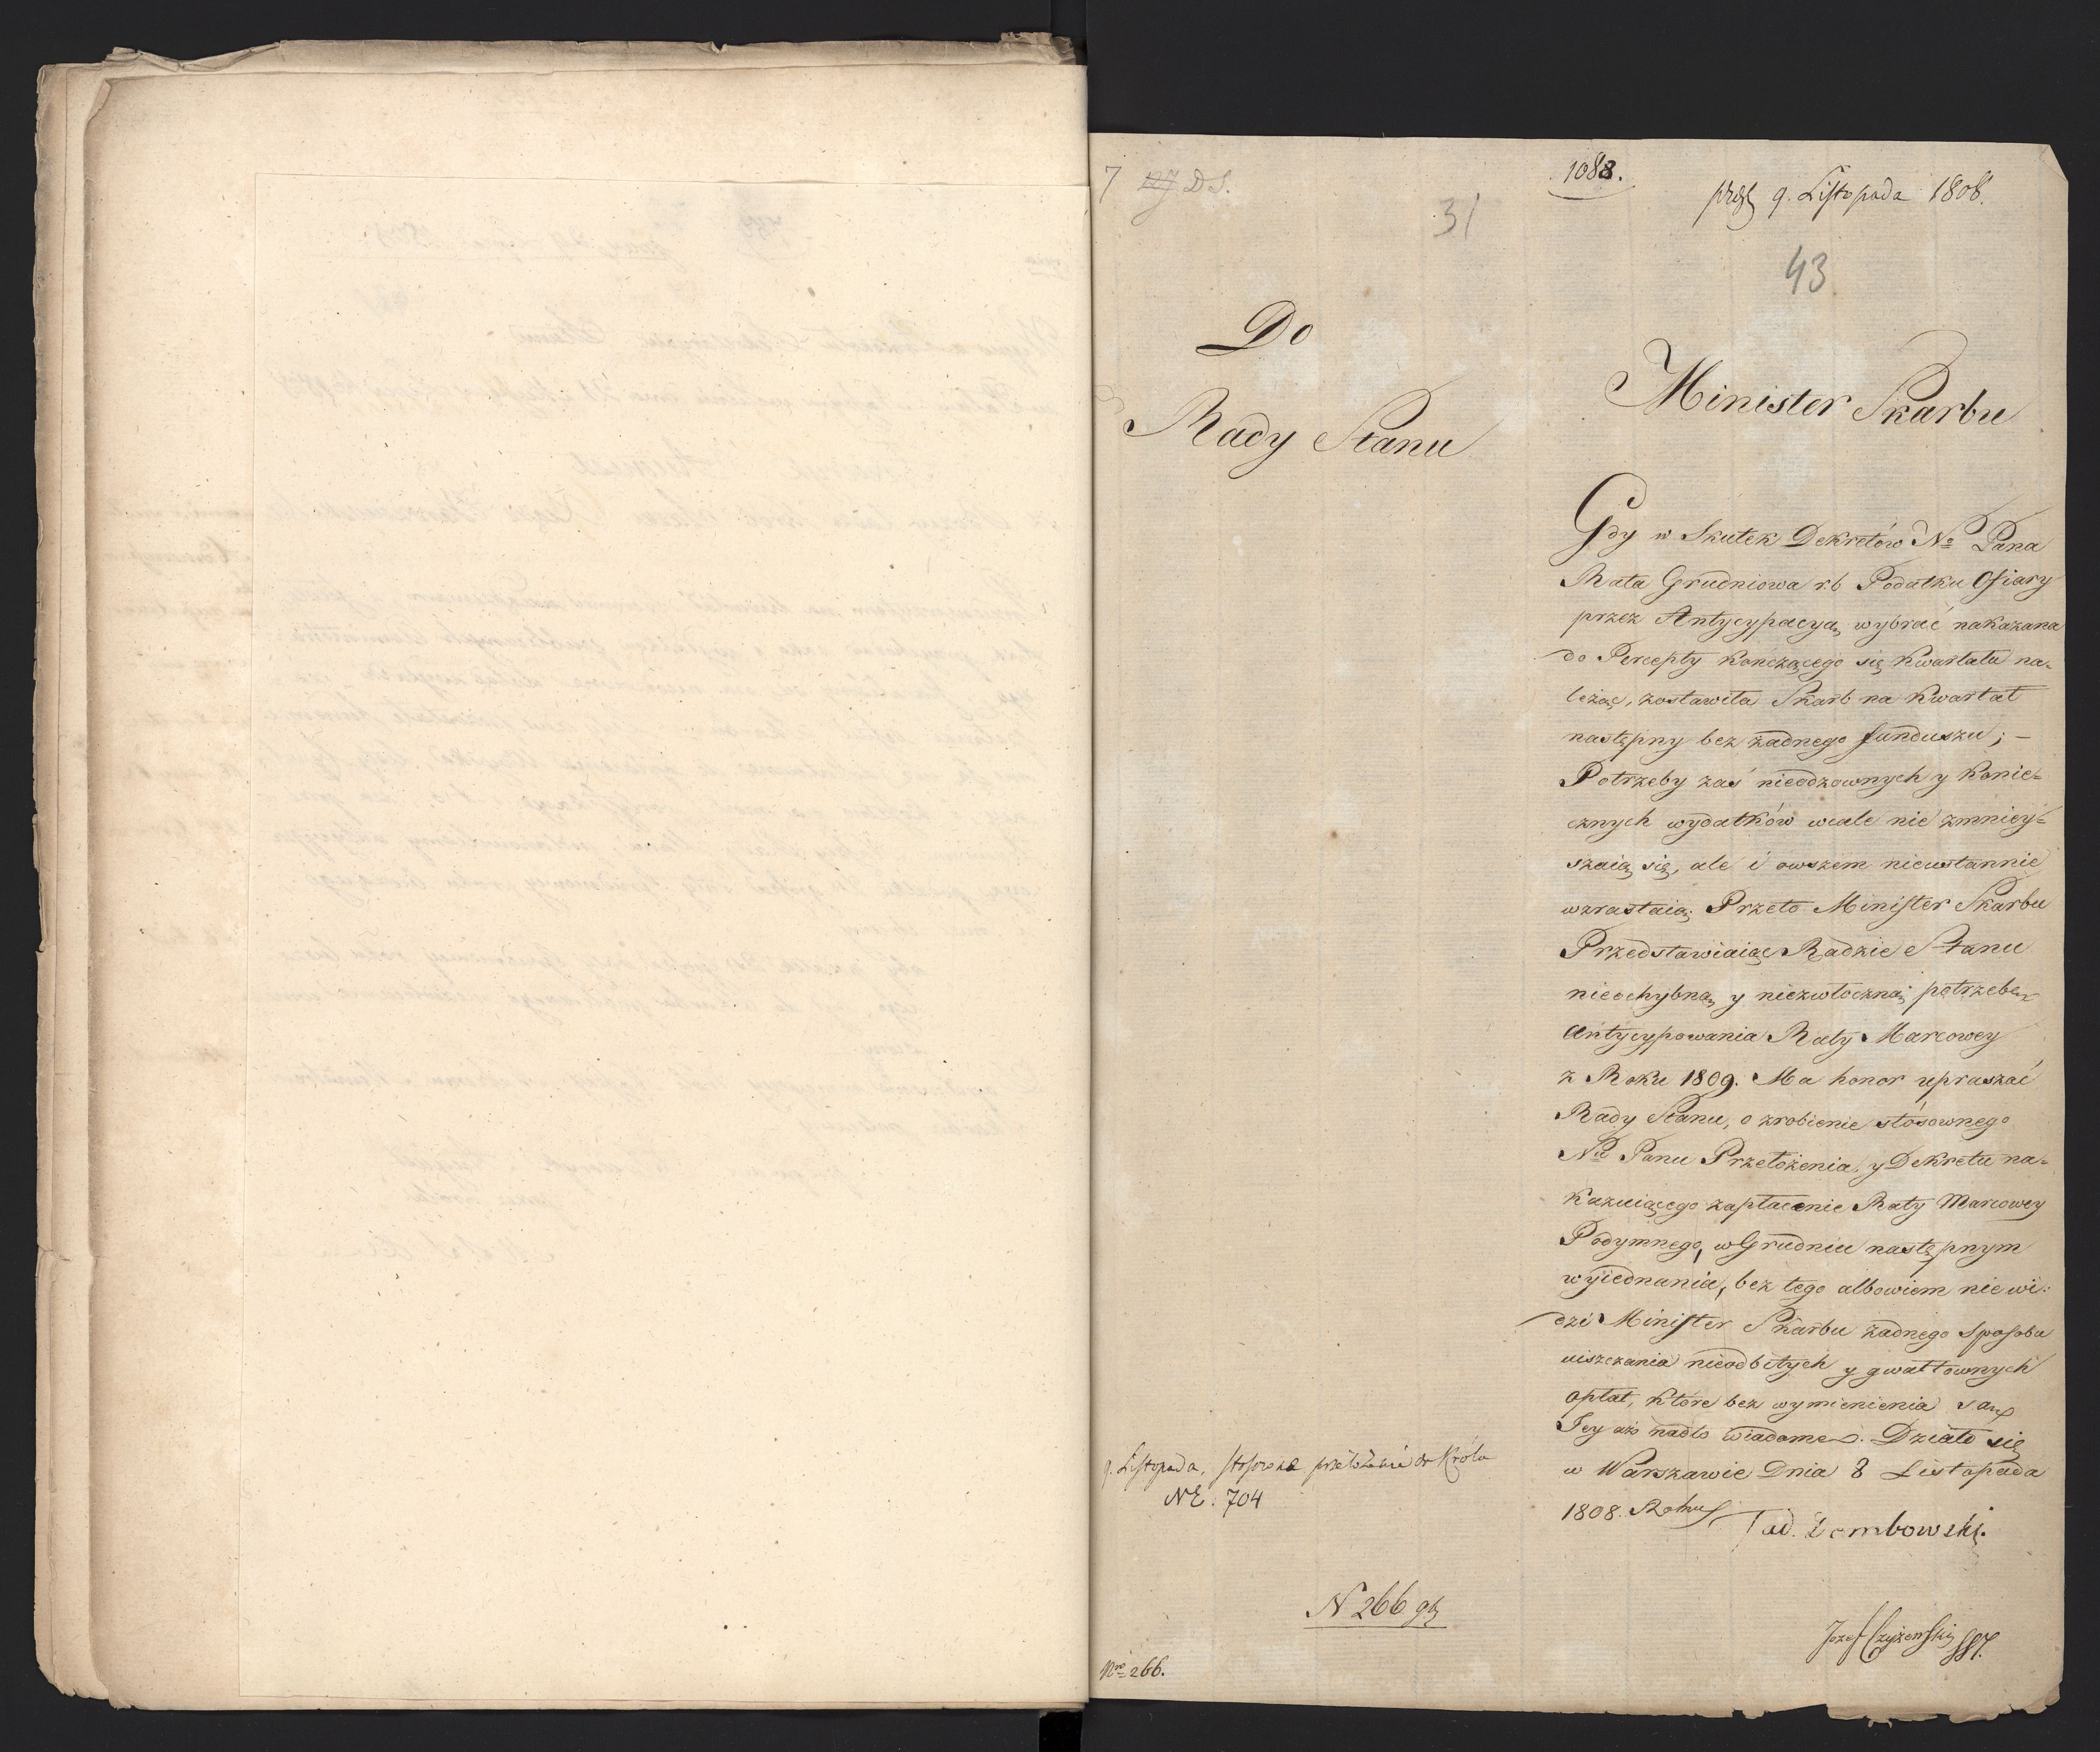 7 127 DS.
31
1088.
9. Listopada 1808.
43
Do
Rady Stanu
Minister Skarbu
Gdy w Skutek Dekretów No Pana
Rata Grudniowa r.b Podatku Ofiary
przez Antycypacyą wybrać nakazana
do Percepty kończącego się kwartału na-
leżąc, zostawiła Skarb na kwartał
następny bez żadnego funduszu; –
Potrzeby zaś nieodzownych y konie-
cznych wydatków wcale nie zmniey-
szaią się, ale i owszem nieustannie
wzrastaią; Przeto Minister Skarbu
Przedstawiaiąc Radzie Stanu
nieochybną y niezwłoczną potrzebę
Antycypowania Raty Marcowey
z Roku 1809. Ma honor upraszać
Rady Stanu, o zrobienie stósownego
No Panu Przełożenia, y Dekretu na-
kazuiącego zapłacenie Raty Marcowey
Podymnego, w Grudniu następnym
wyiednania, bez tego albowiem nie wi-
dzi Minister Skarbu żadnego sposobu
uiszczania nieodbitych y gwałtownych
opłat, które bez wymienienia są
Jey aż nadto wiadome. Działo się
w Warszawie Dnia 8 Listopada
1808. Roku
Tad. Dembowski.
9. Listopada, stosowne przełożenie do Króla
NE. 704
N 266 gb
Józef Czyżewski SJ.
Nro 266.